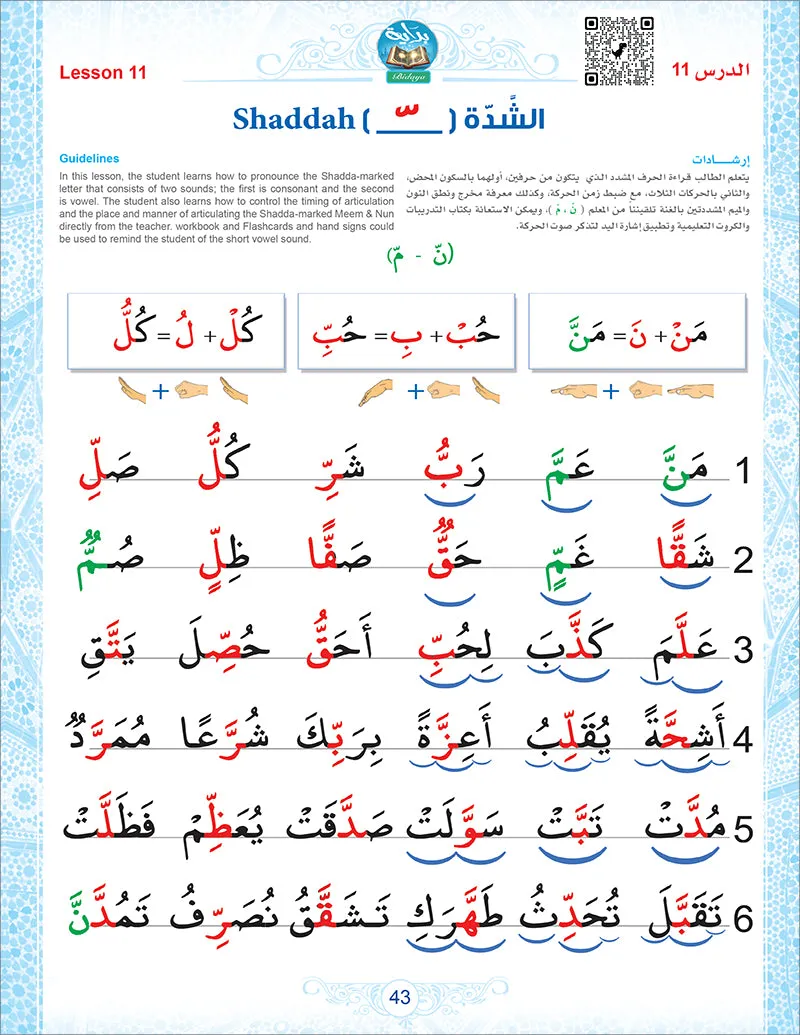 بداية
Bidaya
Lesson 11
الدرس 11
Shaddah ( ـّـ ) الشَّدّة
Guidelines
In this lesson, the student learns how to pronounce the Shadda-marked
letter that consists of two sounds; the first is consonant and the second
is vowel. The student also learns how to control the timing of articulation
and the place and manner of articulating the Shadda-marked Meem & Nun
directly from the teacher. workbook and Flashcards and hand signs could
be used to remind the student of the short vowel sound.
إرشــــادات
يتعلم الطالب قراءة الحرف المشدد الذي يتكون من حرفين، أولهما بالسكون المحض،
والثاني بالحركات الثلاث، مع ضبط زمن الحركة، وكذلك معرفة مخرج ونطق النون
والميم المشددتين بالغنة تلقينًا من المعلم ( نّ ، مّ )، ويمكن الاستعانة بكتاب التدريبات
والكروت التعليمية وتطبيق إشارة اليد لتذكر صوت الحركة.
(نّ - مّ)
مَنْ + نَ = مَنَّ
حُبْ + بِ = حُبِّ
كُلْ + لُ = كُلُّ
1 مَنَّ عَمَّ رَبُّ شَرِّ كُلُّ صَلِّ
2 شَقًّا غَمٍّ حَقٌّ صَفًّا ظِلٍّ صُمٌّ
3 عَلَّمَ كَذَّبَ لِحُبِّ أَحَقُّ حُصِّلَ يَتَّقِ
4 أَشِحَّةً يُقَلِّبُ أَعِزَّةً بِرَبِّكَ شُرَّعًا مُمَرَّدٌ
5 مُدَّتْ تَبَّتْ سَوَّلَتْ صَدَّقَتْ يُعَظِّمْ فَظَلَّتْ
6 تَقَبَّلَ تُحَدِّثُ طَهَّرَكِ تَشَقَّقُ نُصَرِّفُ تَمُدَّنَّ
43